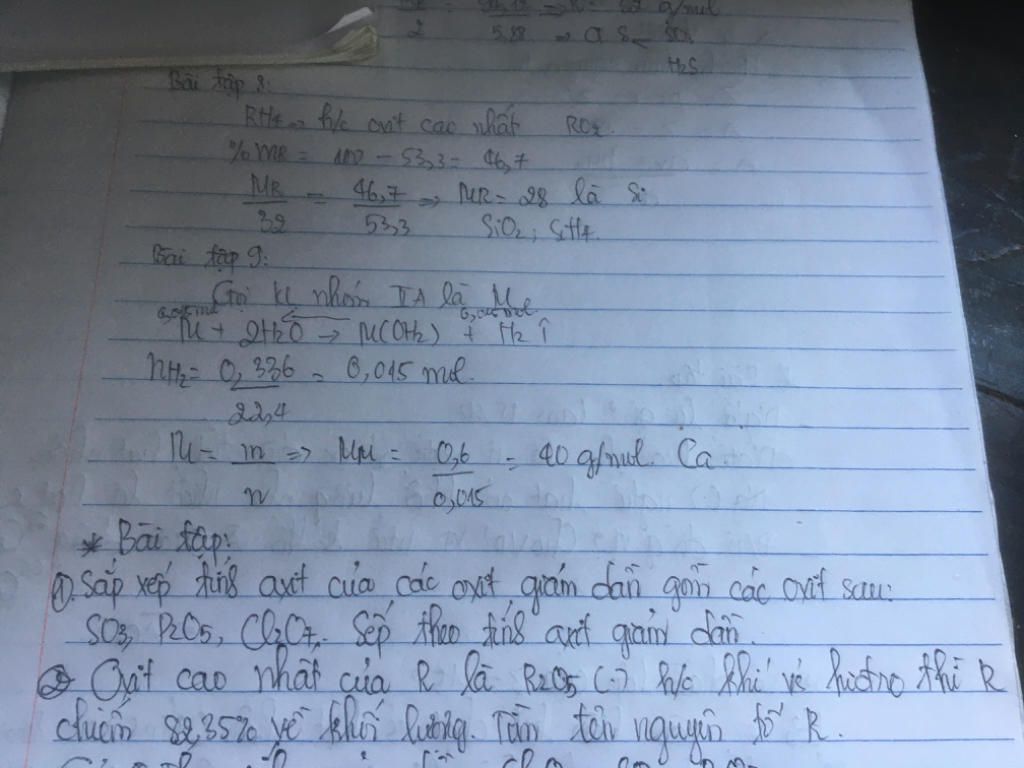 2 5,88 => S SO3
H2S
Bài tập 8:
RH4 => h/c oxit cao nhất RO2
%mR = 100 - 53,3 = 46,7
MR/32 = 46,7/53,3 => MR = 28 là Si
SiO2, SiH4.
Bài tập 9:
Gọi KL nhóm IIA là M
0,015 mol 0,015 mol
M + 2H2O → M(OH2) + H2 ↑
nH2 = 0,336/22,4 = 0,015 mol
M = m/n => MM = 0,6/0,015 = 40 g/mol. Ca
* Bài tập:
①. Sắp xếp tính axit của các oxit giảm dần gồm các oxit sau:
SO3, P2O5, Cl2O7. Sếp theo tính axit giảm dần.
② Oxit cao nhất của R là R2O5 (.) h/c khí vé hiđro thì R
chiếm 82,35% về khối lượng. Tìm tên nguyên tố R.